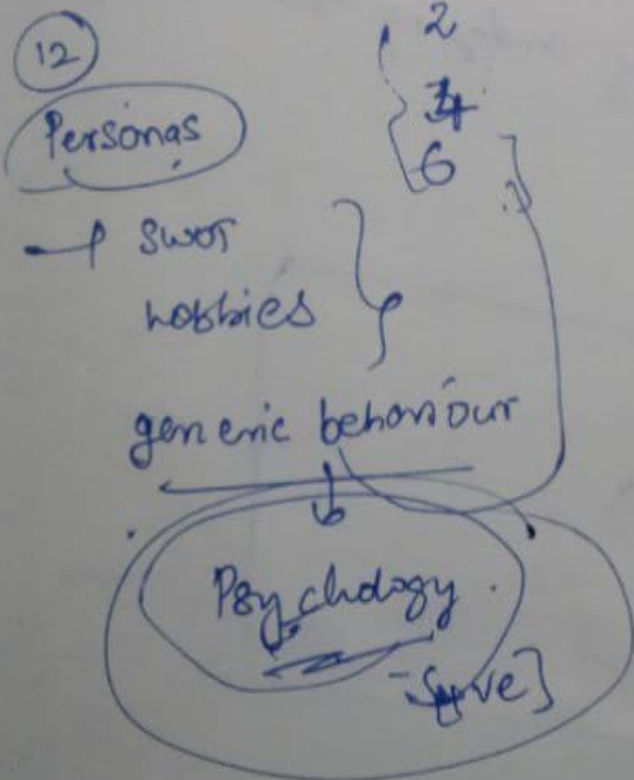 12
2
4
6
Personas
SWOT
hobbies
generic behaviour
Psychology